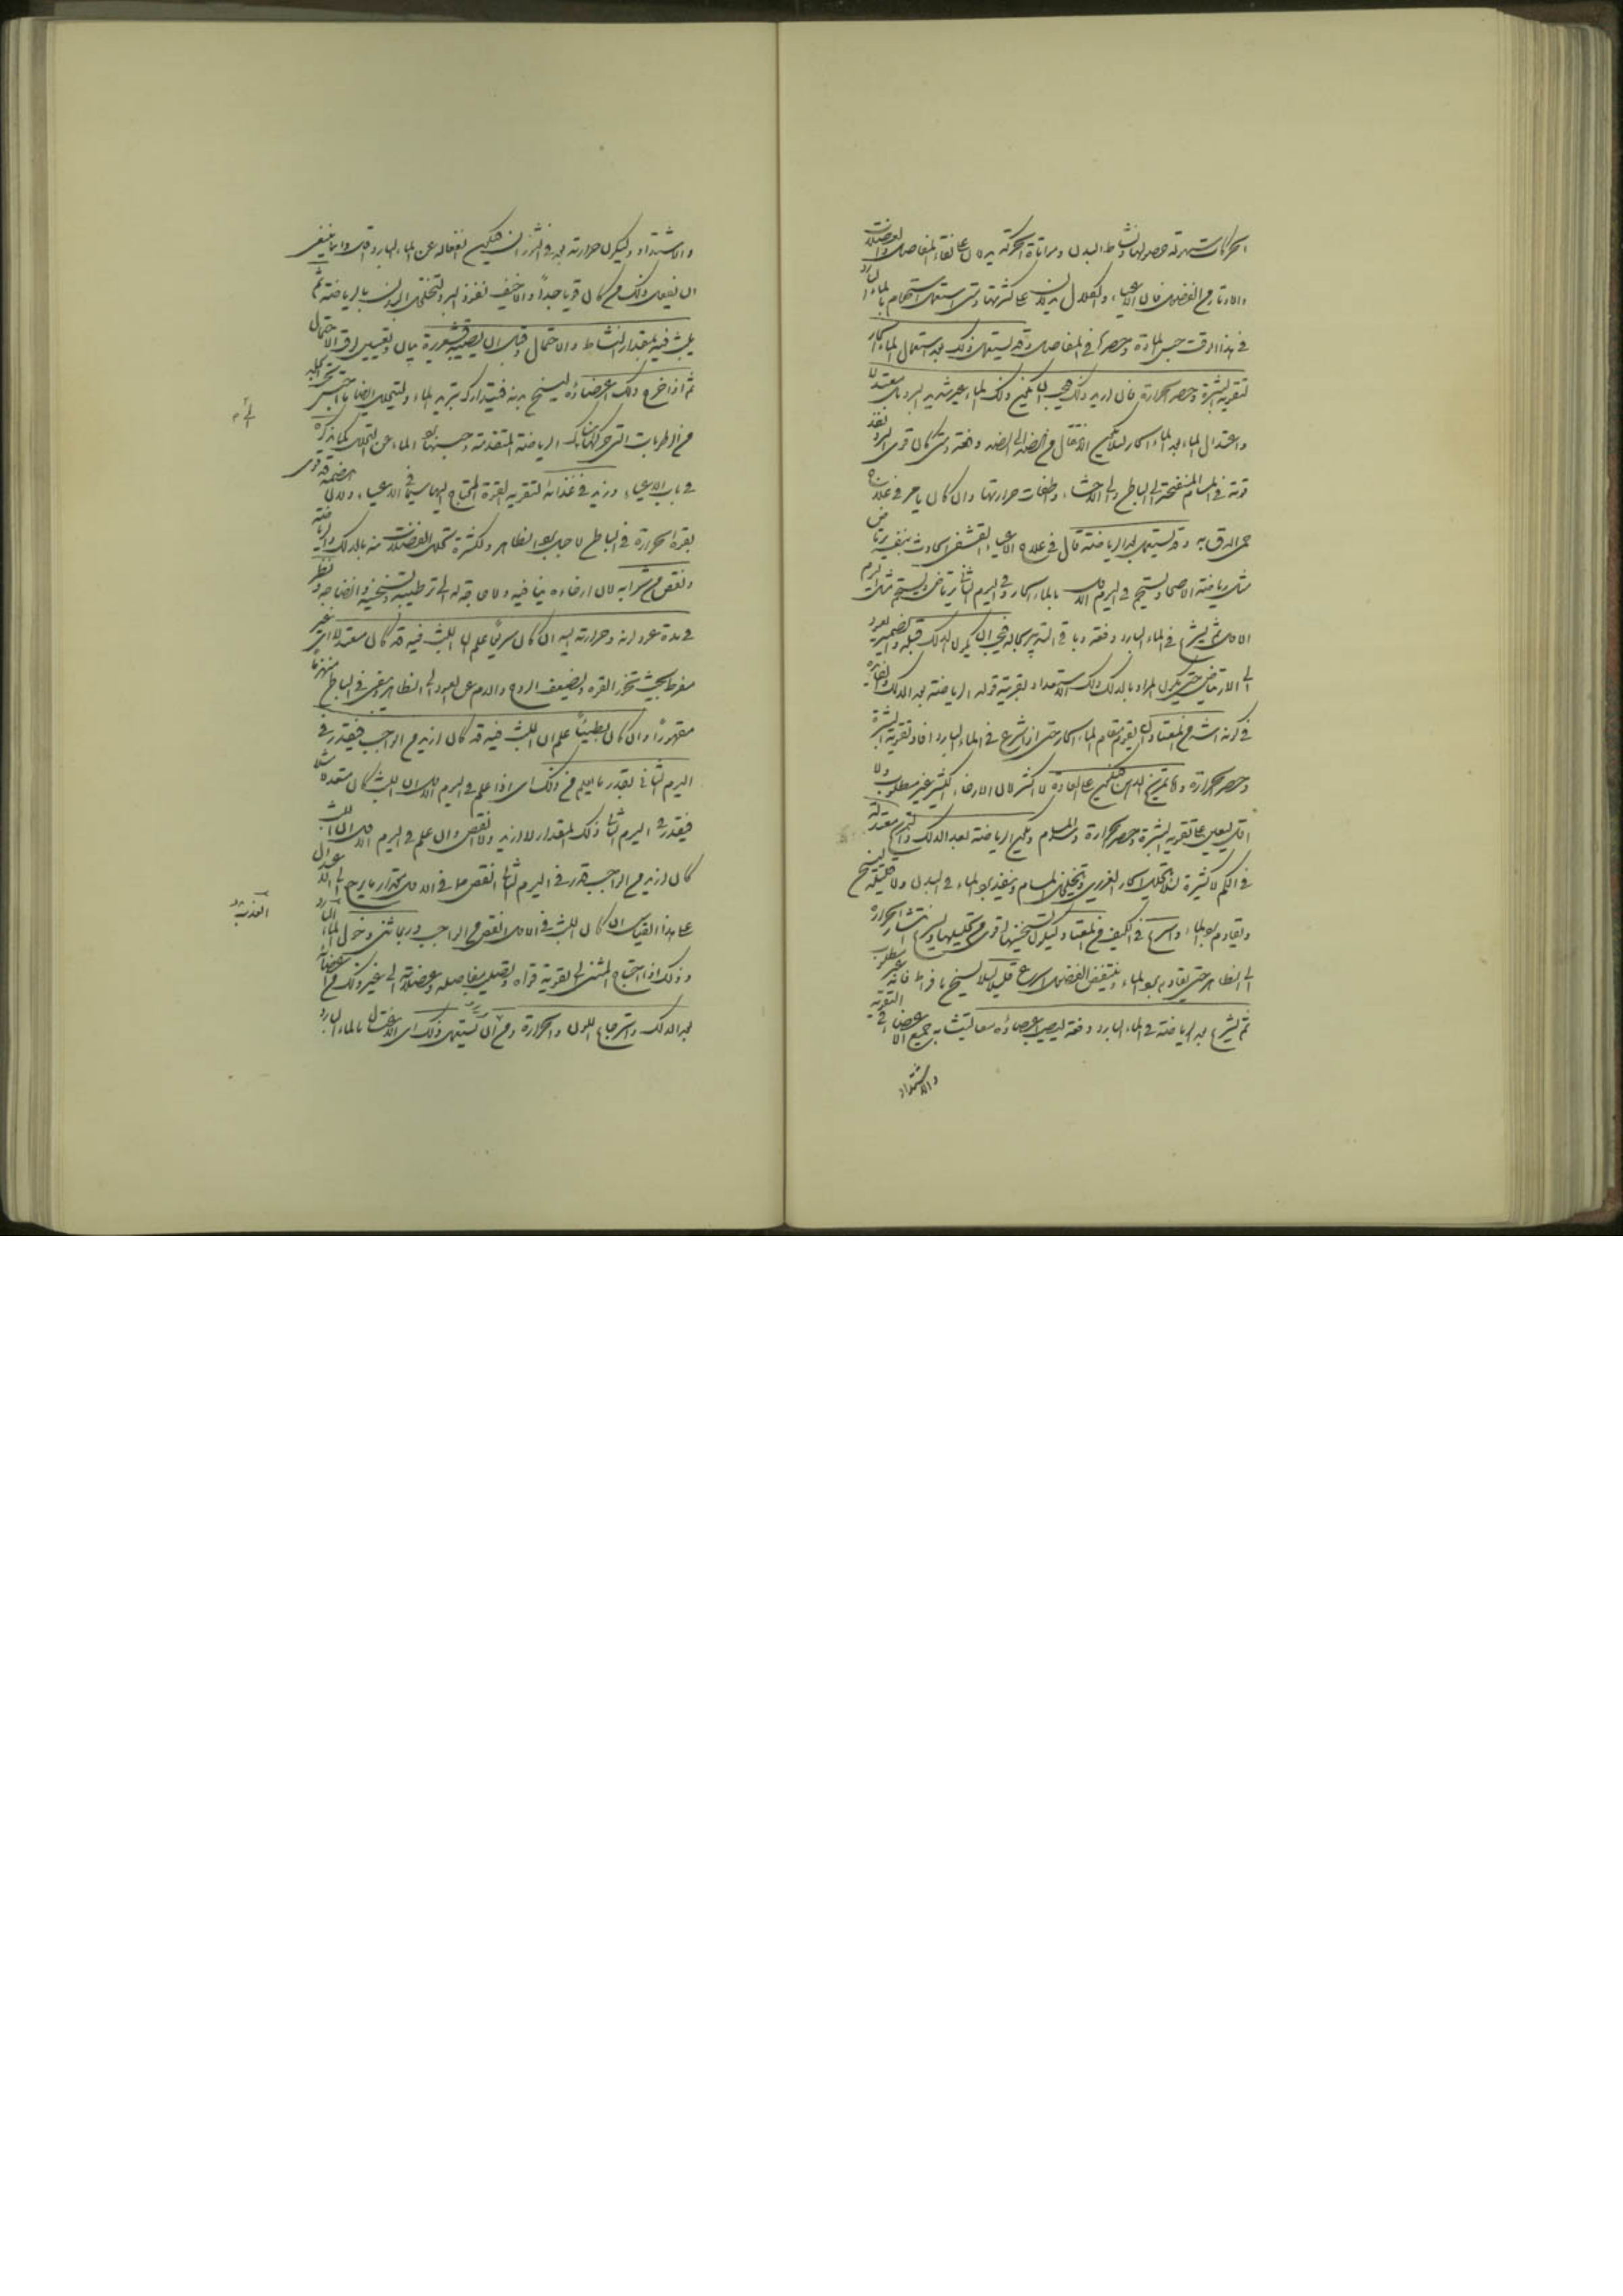 الحركات سهولة حصولها ونشاط البدن ومواتاة الحركة يدلان على نقاء المفاصل والعضلات
والاوتار من الفضول فان الاعياء والكلال يدلان على كثرتها ومتى استعمل الاستحمام بالماء البارد
في هذا الوقت حبس المادة وحصرها في المفاصل وقد يستعمل ذلك بعد استعمال الماء الحار
لتقوية البشرة وحصر الحرارة فان اريد ذلك فيجب ان يكون ذلك الماء غير شديد البرد بل معتدلا
واعتدال الماء بعد الماء الحار لئلا يكون الانتقال من الضد الى الضد دفعة ومتى كان قوي البرد نفذ
قوته في المسام المنفتحة الى الباطن والى الاحشاء وطفأت حرارتها وان كان يامر في علاج
حمى الدق به وقد يستعمل بعد الرياضة قال في علاج الاعياء القشفي الحادث بنفسه يرتاض
مثل رياضة الاصحاء ويستحم في اليوم الاول بالماء الحار وفي اليوم الثاني يرتاض ويستحم مثل اليوم
الاول ثم يشرع في الماء البارد دفعة وباقي التدبير بحاله فيجب ان يكون الدلك قبله والضمير يعود
الى الارتياض حتى يكون المراد بالدلك دلك الاستعداد بقرينة قوله الرياضة بعد الدلك والفائدة
في كونه اشد من المعتاد ان يقوم مقام الماء الحار حتى اذا شرع في الماء البارد افاد تقوية البشرة
وحصر الحرارة واما تمريخ الدهن فيكون على العادة لا اكثر لان الارخاء الكثير غير مطلوب ولا
اقل ليعين على تقوية البشرة وحصر الحرارة والسلام ولتكن الرياضة بعد الدلك والتمريخ معتدلة
في الكم لا كثيرة لئلا يتحلل الحار الغريزي ويتخلخل المسام وينفذ برد الماء في البدن ولا قليلة ليسخن
ويقاوم برد الماء واسرع في الكيف من المعتاد ليكون تسخينها اقوى من تحليلها ويسرع انتشار الحرارة
الى الظاهر حتى يقاوم برد الماء وينتفض الفضول اسرع قليلا لئلا يسخن بافراط فانه غير مطلوب
ثم يشرع بعد الرياضة في الماء البارد دفعة ليصيب اعضاءه معا ليتشابه جميع الاعضاء في التقوية
والاشتداد
والاشتداد وليكون حرارته بعد في الثوران فيكون انفعاله عن الماء البارد اقل وانما ينبغي
ان يفعل ذلك من كان قويا جدا والا خيف نفوذ البرد لتخلخل البدن بالرياضة ثم
يلبث فيه بمقدار النشاط والاحتمال وقبل ان يصيبه قشعريرة بيان وتعيين لوقت الاحتمال
ثم اذا خرج دلك اعضاؤه ليسخن بدنه فيتدارك تبريد الماء وليتحلل ايضا ما احتبس تحت الجلد
من الرطوبات التي حركتها تلك الرياضة المتقدمة وحبسها برد الماء عن التحلل كما نذكره
في باب الاعياء وزيد في غذائه لتقويه القوة المحتاج اليها سيما في الاعياء ولان الهضم قد قوي
بقوة الحرارة في الباطن لاجل برد الظاهر ولكثرة تحلل الفضلات منه بالدلك والرياضة
ونقص من شرابه لان ارخاءه ينافيه ولا حاجة له الى ترطيبه وتسخينه وانضاجه ونظر
في مدة عود لونه وحرارته اليه ان كان سريعا علم ان اللبث فيه قد كان معتدلا اي غير
مفرط بحيث تخور القوة ويضعف الروح والدم عن العود الى الظاهر ويبقى في الباطن منهزما
مقهورا وان كان بطيئا علم ان اللبث فيه قد كان ازيد من الواجب فيقدر في
اليوم الثاني بقدر ما يعلم من ذلك اي اذا علم في اليوم الاول ان اللبث كان معتدلا مثلا
فيقدر في اليوم الثاني ذلك المقدار لا ازيد ولا انقص وان علم في اليوم الاول ان اللبث
كان ازيد من الواجب قدر في اليوم الثاني انقص مما في الاول بمقدار ما يرجع الى الاعتدال
على هذا القياس ان كان اللبث في الاول انقص من الواجب وربما ثنى دخول الماء البارد
وذلك اذا احتاج المثني الى تقوية قواه وتصليب مفاصله وعضلاته الى غير ذلك من اعضائه
بعد الدلك واسترجاع اللون والحرارة ومن اراد ان يستعمل ذلك اي الاغتسال بالماء البارد